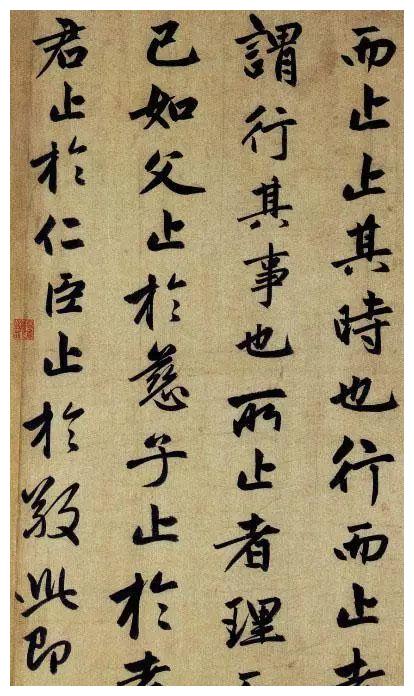 而止止其時也行而止者
謂行其事也所止者理
已如父止於慈子止於孝
君止於仁臣止於敬此即